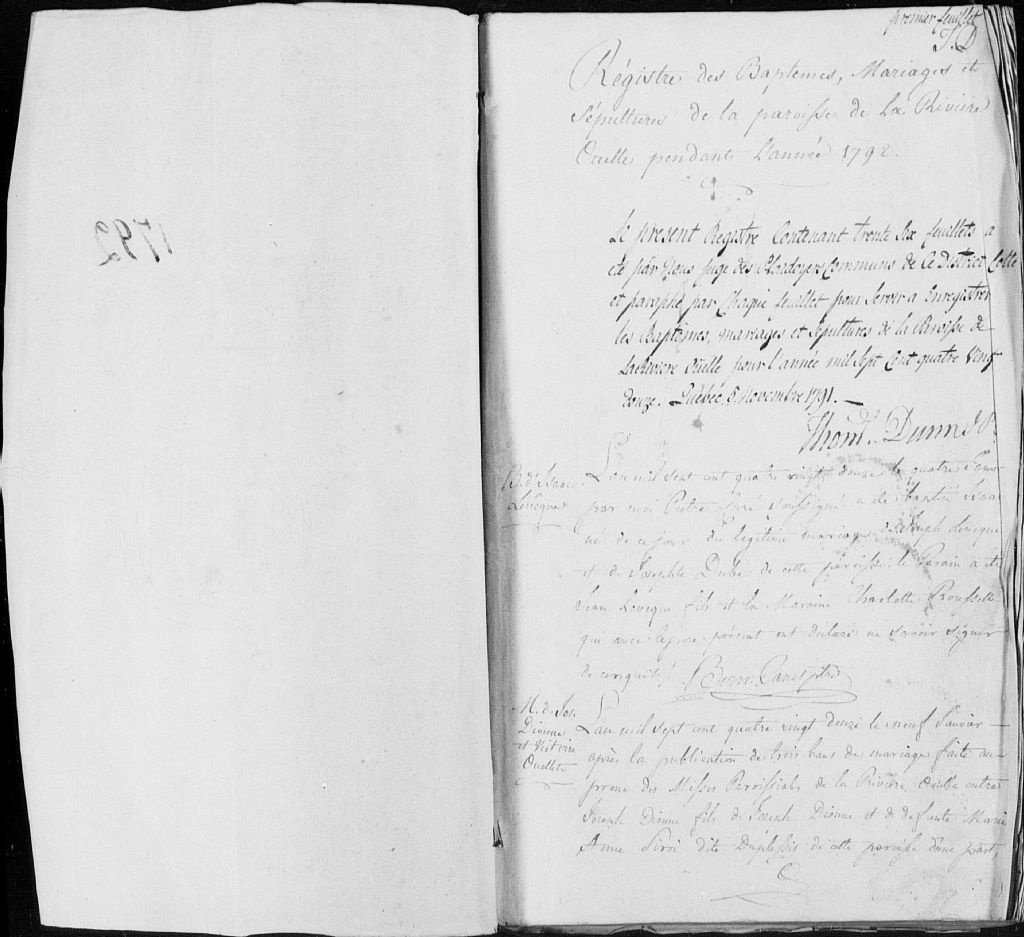 premier feuillet
T.D
Régistre des Baptemes, Mariages et
Sépultures de la paroisse de La Riviere
Ouelle pendant L'année 1792.
1792
Le present Registre Contenant trente Six feuillets a
été par Nous juge des Plaidoyers Communs de Ce District Cotté
et paraphé par Chaque feuillet pour Servir a Enregistrer
les Baptêmes, mariages et Sepultures de la Paroisse de
La Riviere Oüelle pour l'année mil Sept Cent quatre Vingt
douze. Québéc 8 Novembre 1791.
Thom. Dunn J.P.
B. d'Isaac
Levêque
L'an mil sept cent quatre vingt douze le quatre Janv
par moi Prêtre Curé soussigné a été baptisé Isaac
né de ce jour du légitime mariage de Joseph Leveque
et de Josephte Dubé de cette paroisse. le Parain a été
Jean Leveque fils et la Maraine Charlotte Rousselle
qui avec le pere présent ont déclaré ne savoir signer
de ce requis /. Bern. Panet ptre
M. de Jos.
Dionne
et Victoire
Ouellet
L'an mil sept cent quatre vingt douze le neuf Janvier
après la publication de trois bans de mariage faite au
prone des Messes Paroissiales de la Rivière Ouelle entre
Joseph Dionne fils de Joseph Dionne et de defunte Marie
Anne Siroi dite Duplessis de cette paroisse d'une part,